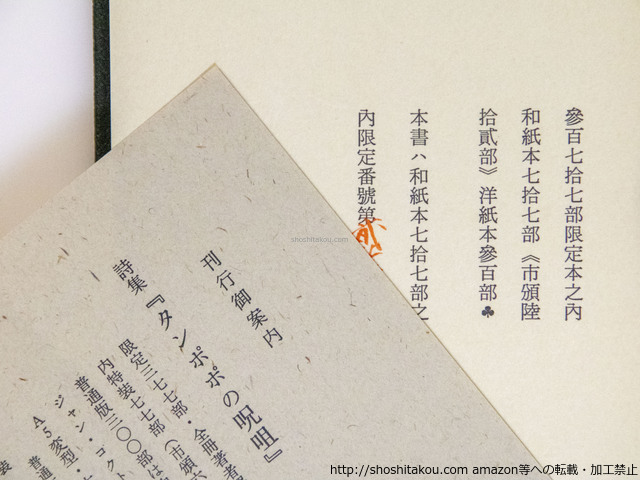 參百七拾七部限定本之內
和紙本七拾七部《市頒陸
拾貳部》洋紙本參百部♣
本書ハ和紙本七拾七部之
內限定番號第
刊行御案内
詩集『タンポポの呪咀』
限定三七七部・全冊著者
内特装七七部（市頒六
普通版三〇〇部は
ジャン・コクト
A5変型・
普通
装
shoshitakou.com
http://shoshitakou.com amazon等への転載・加工禁止